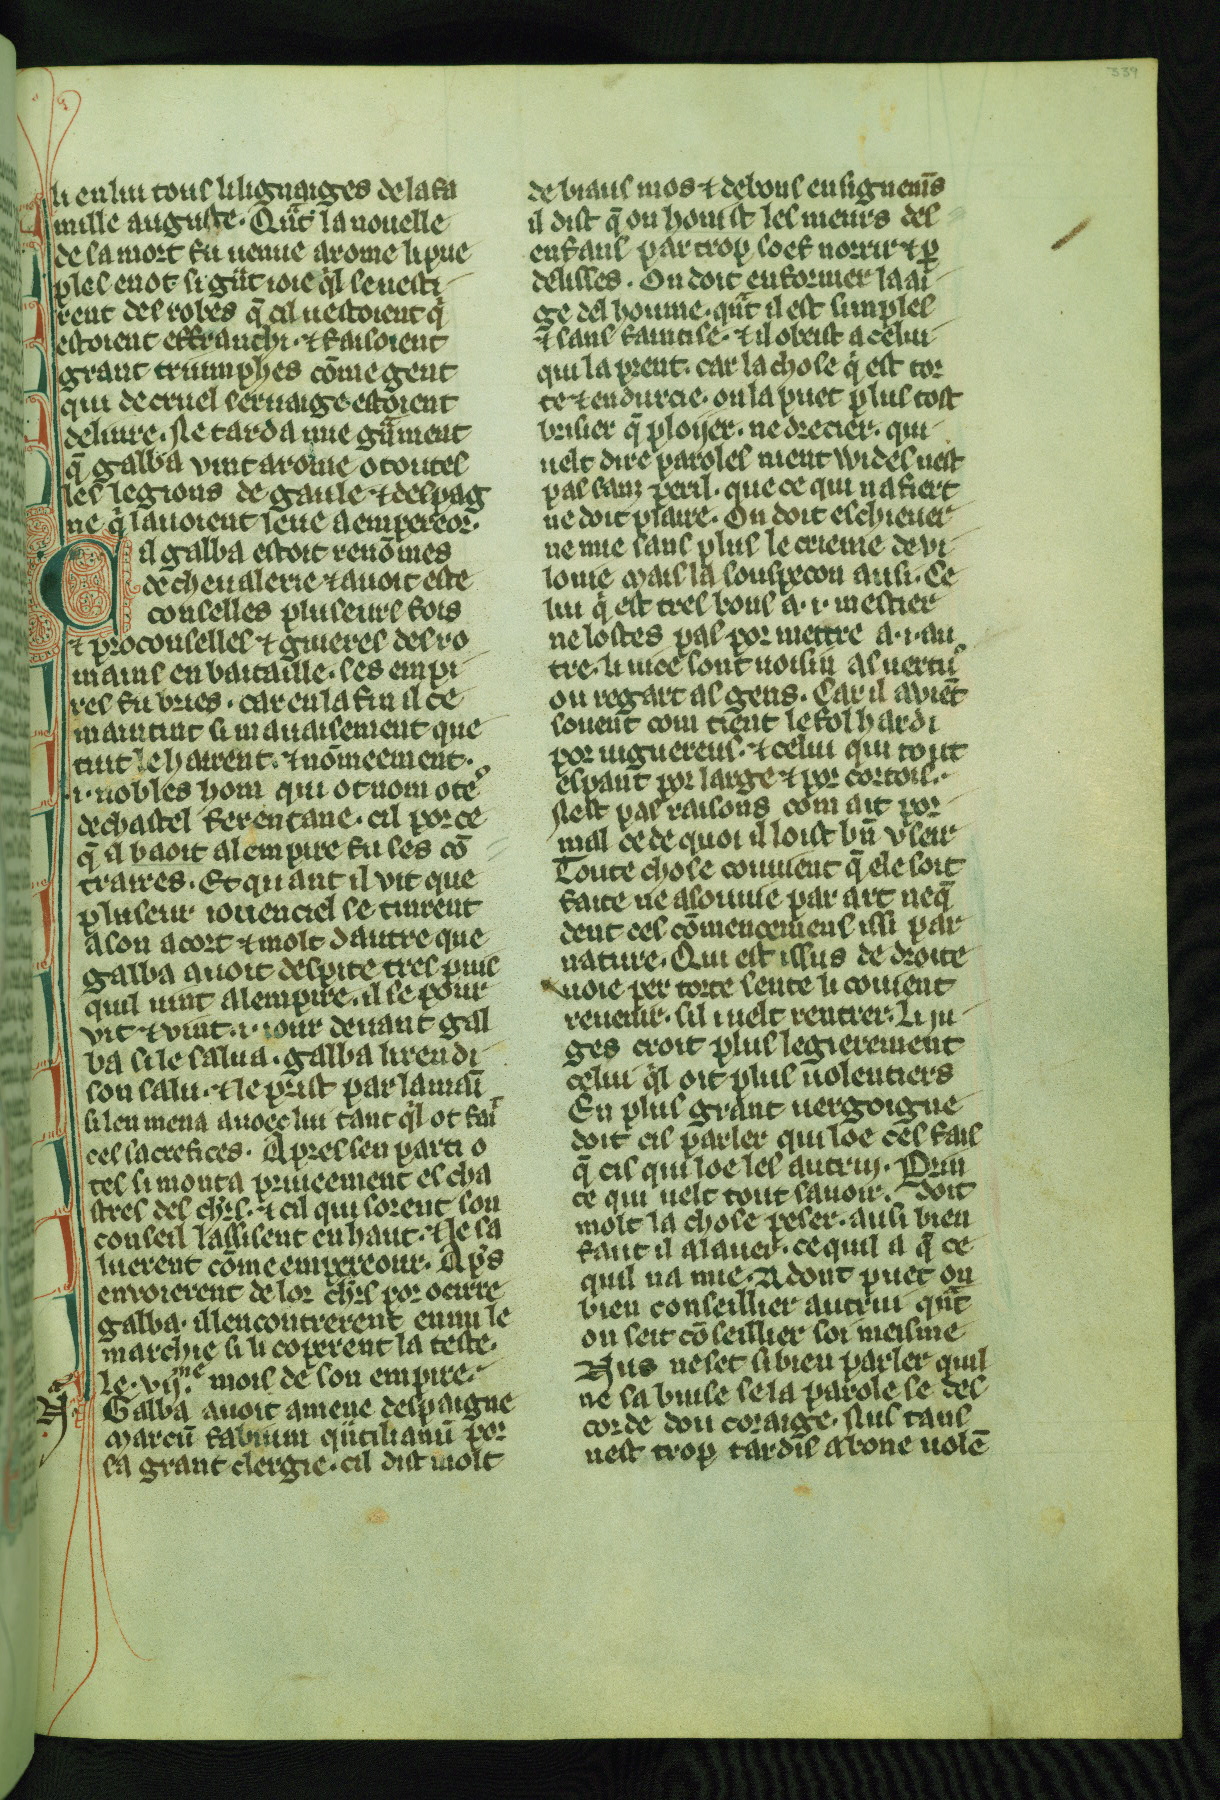 339
li en lui tous li lignaiges de la fa
mille auguste. Qͣnt la nouelle
de sa mort fu uenue a rome li pue
ples en ot si gͣnt ioie qͥl se uesti
rent des robes q̄ cil uestoient qͥ
estoient effranchi. ⁊ faisoient
grant triumphes cōme gent
qui de cruel seruaige estoient
deliure. Ne tarda mie gͣment
q̄ galba vint a rome o toutes
les legions de gaule ⁊ despaig
ne qͥ lauoient leue a empereor.
Cil galba estoit renōmes
de cheualerie ⁊ auoit este
conselles pluseurs fois
⁊ proconselles ⁊ guieres des ro
mains en bataille. ses empi
res fu bries. car en la fin il ce
maintint si mauaisement que
tuit le hairent. ⁊ nōmeement.
.i. nobles hom qui ot nom ote
de chastel ferentane. cil por ce
q̄ il baoit a lempire fu ses cō
traires. Et quant il vit que
pluseur iouencel se tinrent
a son acort ⁊ molt dautre que
galba auoit despite tres puis
quil uint a lempire. il se pour
vit ⁊ vint .i. iour deuant gal
ba si le salua. galba li rendi
son salu. ⁊ le prist par la main
si len mena auoec lui tant qͥl ot fai
ces sacrefices. Apres sen parti o
tes si monta priueement es cha
stres des chrs. ⁊ cil qui sorent son
conseil lassisent en haut. ⁊ le sa
luerent cōme empereour. Aps
enuoierent de lor chrs por ocirre
galba. il lencontrerent enmi le
marchie si li coperent la teste.
Le .vijme. mois de son empire.
Galba auoit amene despaigne
marcū fabium qͥntilianū por
sa grant clergie. cil dist molt
de biaus mos ⁊ de bons ensignemēs
il dist q̄ on honist les meurs des
enfans par trop soef norrir ⁊ p̄
delisses. On doit enformer la ai
ge del home. qͣnt il est simples
⁊ sans faintise. ⁊ il obeist a celui
qui la prent. car la chose qͥ est tor
te ⁊ endurcie. on la puet plus tost
brisier q̄ ploijer. ne drecier. qui
uelt dire paroles nient wides nest
pas sanz peril. que ce qui n afiert
ne doit plaire. On doit eschieuer
ne mie sans plus le crieme de vi
lonie mais la souspecon ausi. Ce
lui qͥ est tres bons a .i. mestier
ne lostes pas por mettre a .i. au
tre. li uice sont uoisin as uertus
ou regart as gens. Car il auiēt
souent com tient le fol hardi
por uiguereus. ⁊ celui qui tout
espant por large ⁊ por cortois.
Nest pas raisons com ait por
mal ce de quoi il loist bn̄ vseir
Toute chose conuient q̄ ele soit
faite ne asouuie par art neq̄
dent ces cōmencemens issi par
nature. Qui est issus de droite
uoie per torte sente li couient
reuenir. sil i uelt rentrer. Li ju
ges croit plus legierement
celui qͥl oit plus uolentiers
En plus grant uergoigne
doit cil parler qui loe ces fais
q̄ cil qui loe les autrui. Prin
ce qui uelt tout sauoir. doit
molt la chose peser. ausi bien
faut il al auer. ce quil a q̄ ce
quil na mie. Adont puet on
bien conseillier autrui qͣnt
on seit cōseillier soi meisme
Nus ne set si bien parler quil
ne sa bruise se la parole se des
corde dou coraige. Nus tans
nest trop tardis a bone uolē